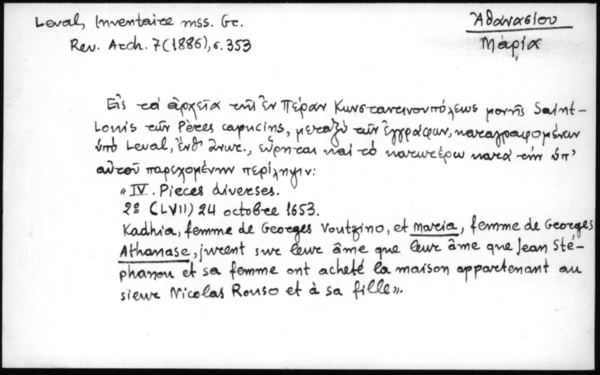 Leval, Inventaire mss. Gr.
Rev. Arch. 7 (1886), σ. 353
Ἀθανασίου
Μαρία
Εἰς τὰ ἀρχεῖα τῆς ἐν Πέραν Κωνσταντινουπόλεως μονῆς Saint-
Louis τῶν Pères capucins, μεταξὺ τῶν ἐγγράφων, καταγραφομένων
ὑπὸ Leval, ἔνθ' ἀνωτ., εὕρηται καὶ τὸ κατωτέρω κατὰ τὴν ὑπ'
αὐτοῦ παρεχομένην περίληψιν:
« IV. Pieces diverses.
2º (LVII) 24 octobre 1653.
Kadhia, femme de Georges Voutzino, et Maria, femme de Georges
Athanase, jurent sur leur âme que leur âme que Jean Sté-
phanou et sa femme ont acheté la maison appartenant au
sieur Nicolas Rouso et à sa fille ».